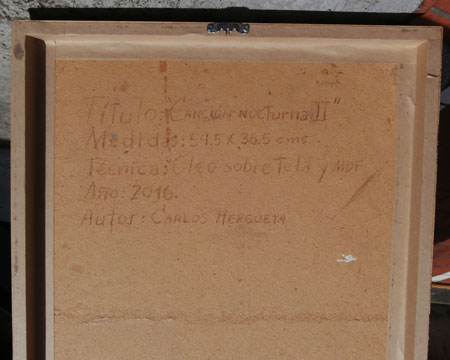 Título: "Canción nocturna II"
Medidas: 54.5 x 36.5 cms.
Técnica: Oleo sobre tela y MDF
Año: 2016.
Autor: CARLOS HERGUETA